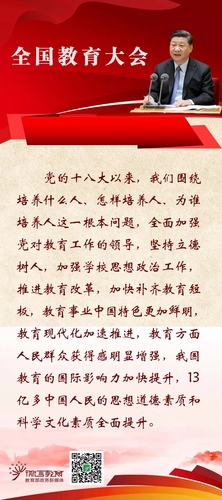 全国教育大会
党的十八大以来，我们围绕
培养什么人、怎样培养人、为谁
培养人这一根本问题，全面加强
党对教育工作的领导，坚持立德
树人，加强学校思想政治工作，
推进教育改革，加快补齐教育短
板，教育事业中国特色更加鲜明，
教育现代化加速推进，教育方面
人民群众获得感明显增强，我国
教育的国际影响力加快提升，13
亿多中国人民的思想道德素质和
科学文化素质全面提升。
微言教育
教育部政务新媒体